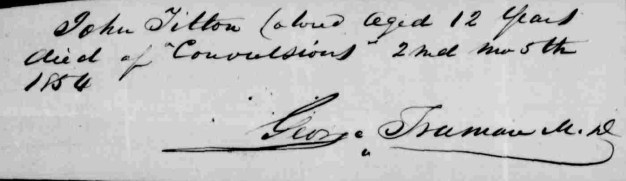 John Titton Colored aged 12 Years
died of "Convulsions" 2nd mo 5th
1854
George Truman M.D